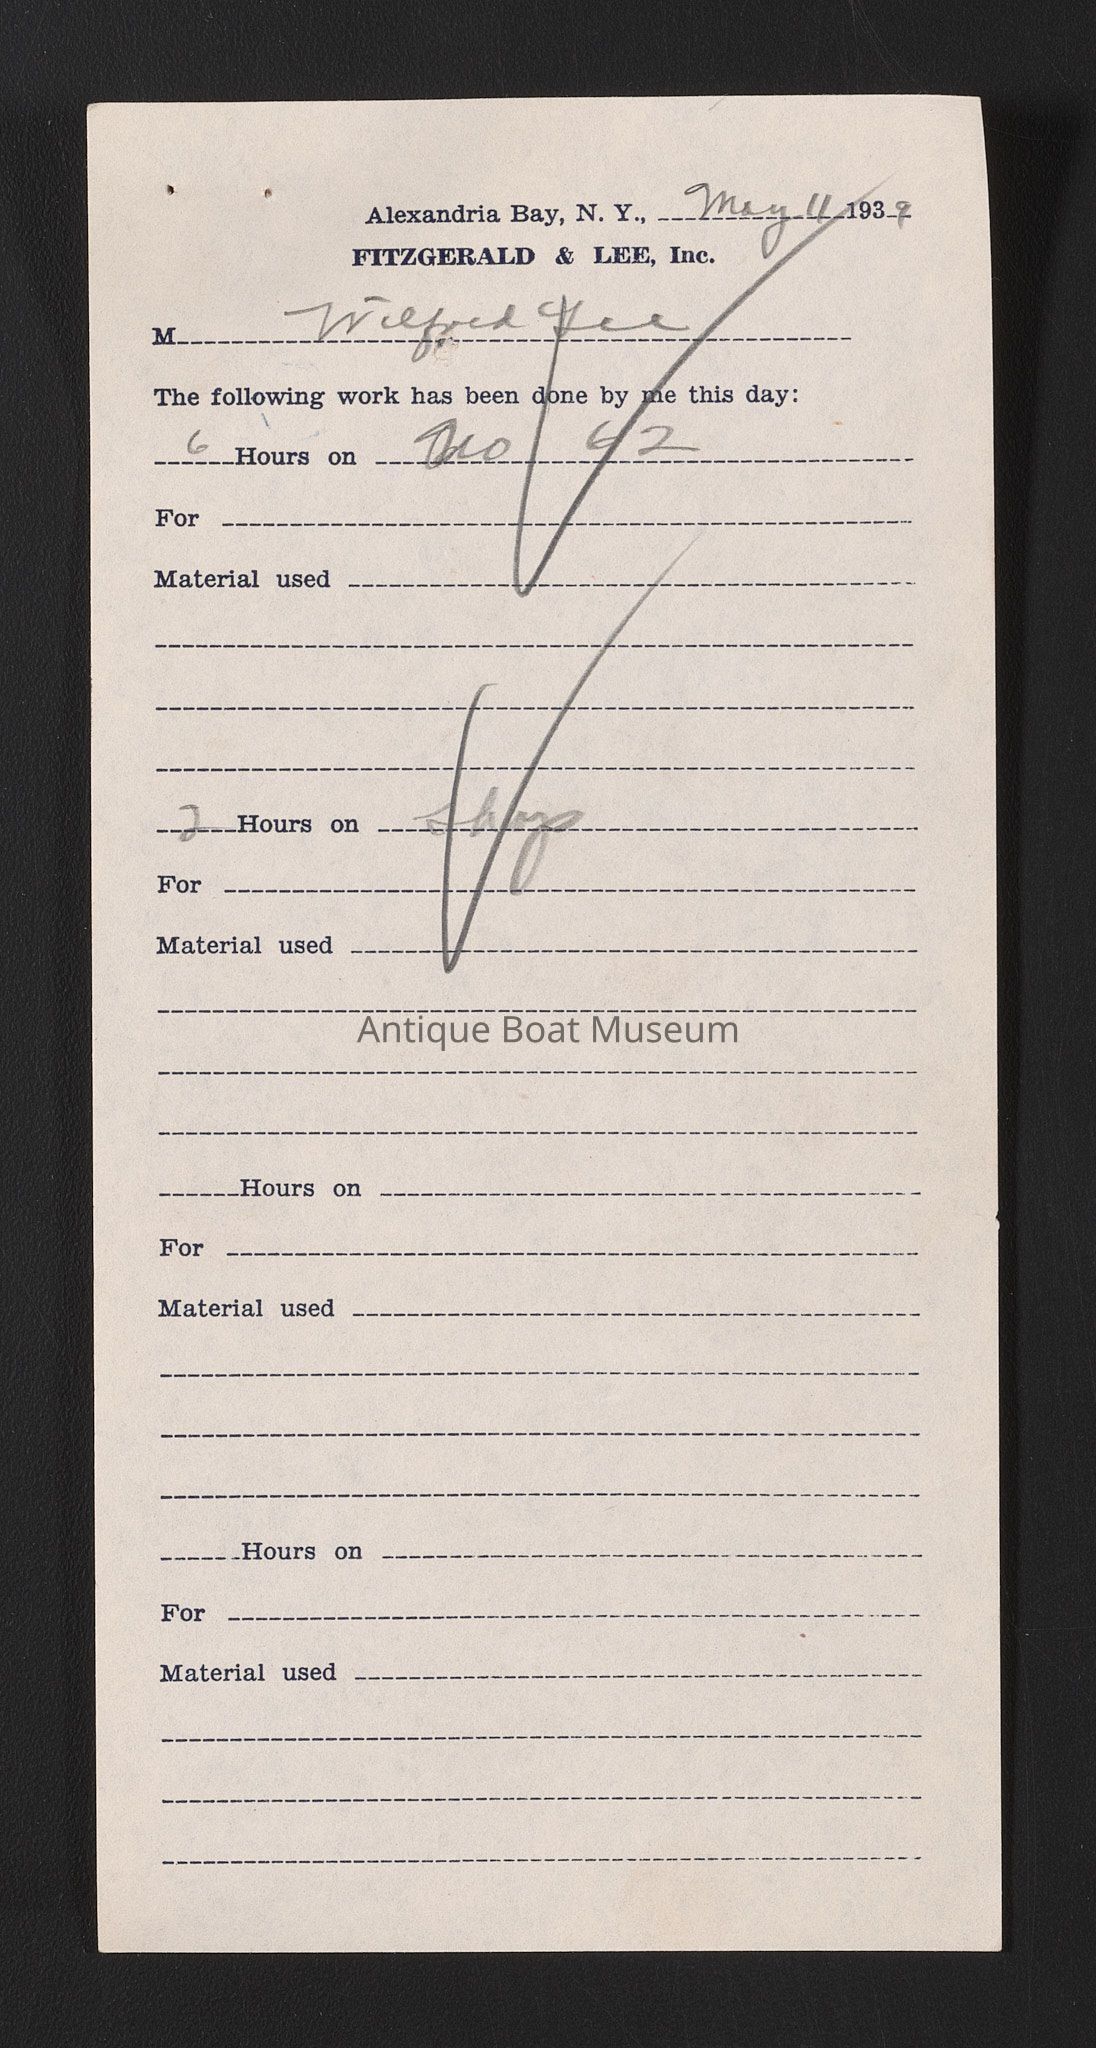 Alexandria Bay, N. Y., May 11 1939
FITZGERALD & LEE, Inc.
M Wilfred Lee
The following work has been done by me this day:
6 Hours on No 62
For
Material used
2 Hours on Shop
For
Material used
Antique Boat Museum
Hours on
For
Material used
Hours on
For
Material used